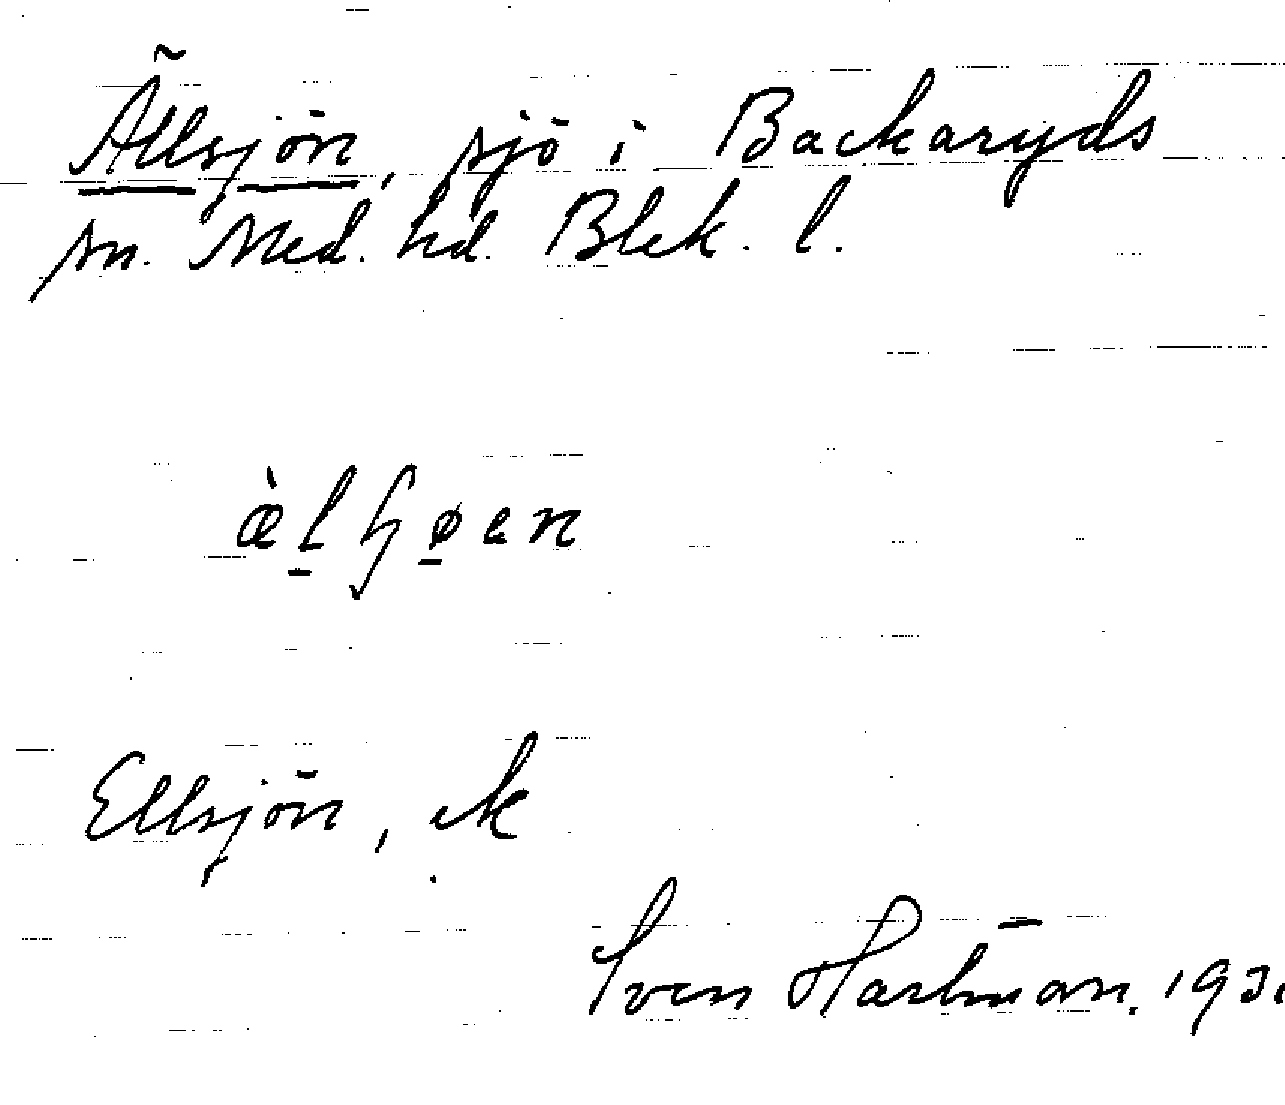 Ällsjön, sjö i Backaryds
sn. Med. hd. Blek. l.
Ellsjön, ek
Sven Hartman. 193